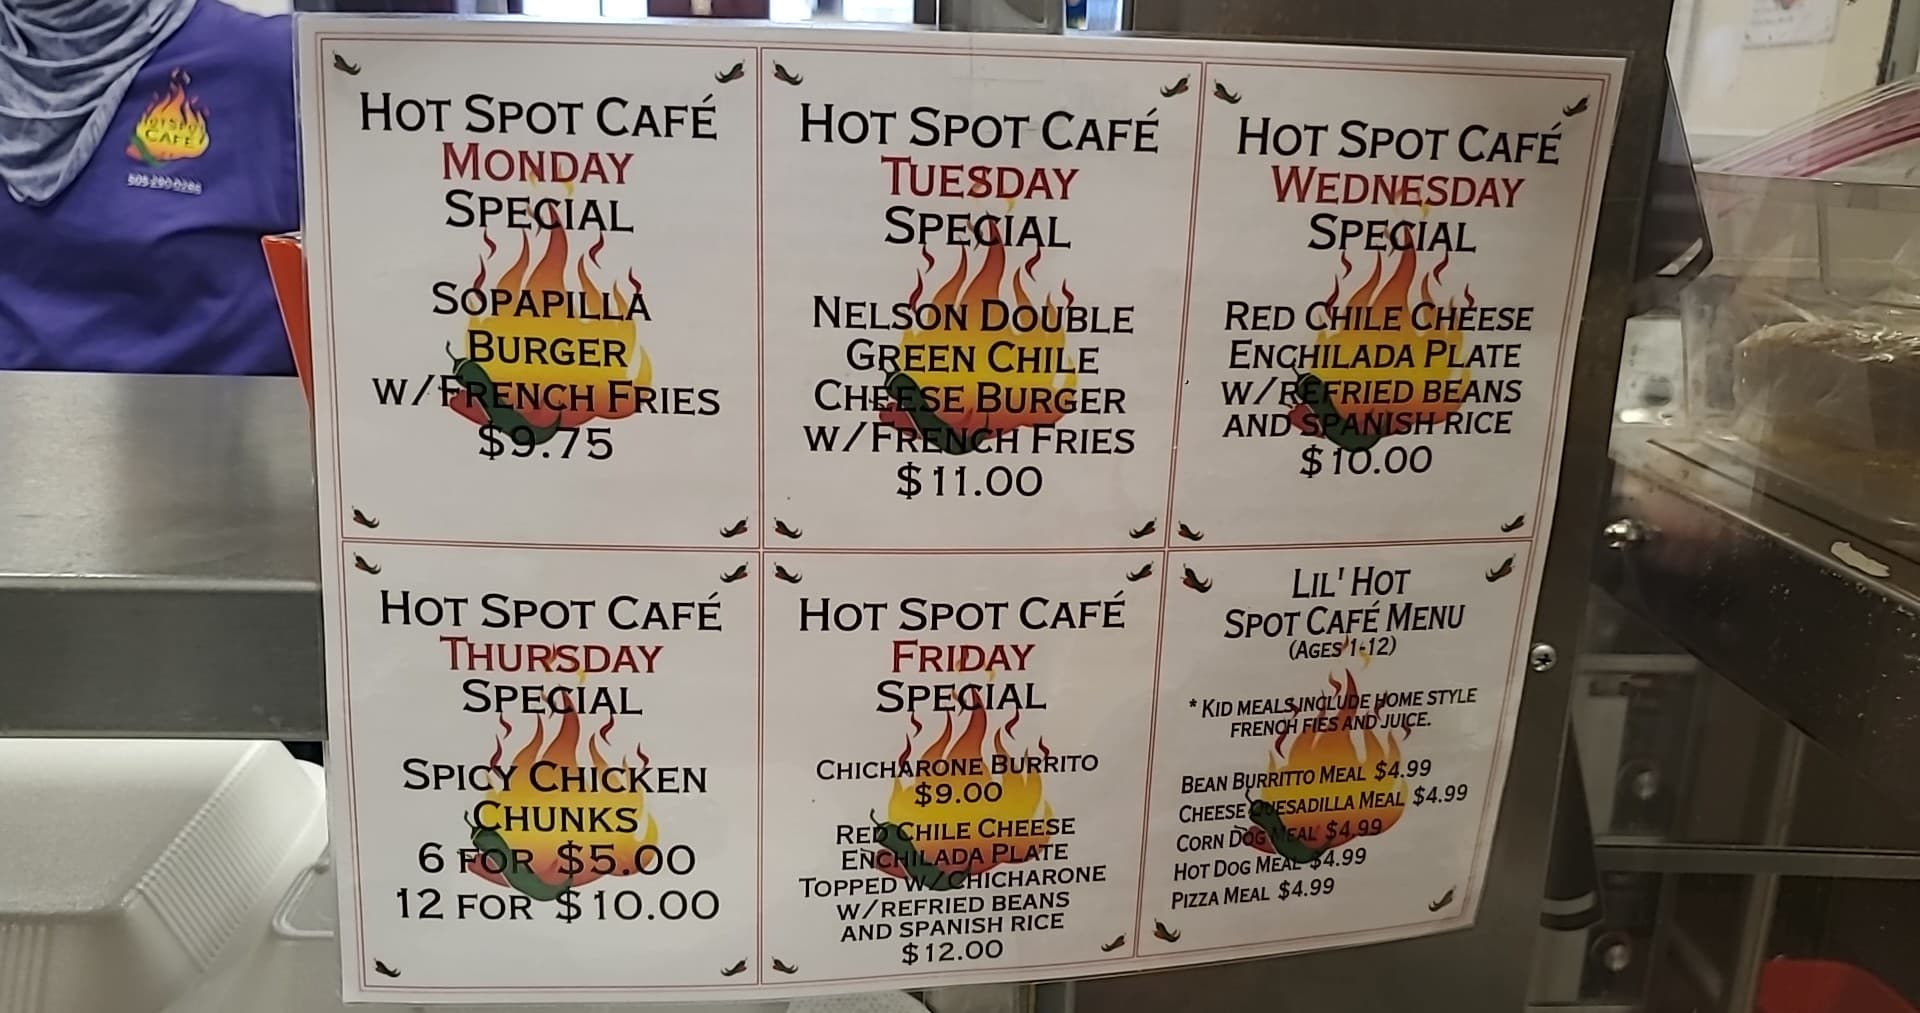 HOT SPOT CAFÉ
MONDAY
SPECIAL
SOPAPILLA
BURGER
W/FRENCH FRIES
$9.75
HOT SPOT CAFÉ
TUESDAY
SPECIAL
NELSON DOUBLE
GREEN CHILE
CHEESE BURGER
W/FRENCH FRIES
$11.00
HOT SPOT CAFÉ
WEDNESDAY
SPECIAL
RED CHILE CHEESE
ENCHILADA PLATE
W/REFRIED BEANS
AND SPANISH RICE
$10.00
HOT SPOT CAFÉ
THURSDAY
SPECIAL
SPICY CHICKEN
CHUNKS
6 FOR $5.00
12 FOR $10.00
HOT SPOT CAFÉ
FRIDAY
SPECIAL
CHICHARONE BURRITO
$9.00
RED CHILE CHEESE
ENCHILADA PLATE
TOPPED W/CHICHARONE
W/REFRIED BEANS
AND SPANISH RICE
$12.00
LIL' HOT
SPOT CAFÉ MENU
(AGES 1-12)
* KID MEALS INCLUDE HOME STYLE
FRENCH FIES AND JUICE.
BEAN BURRITTO MEAL $4.99
CHEESE QUESADILLA MEAL $4.99
CORN DOG MEAL $4.99
HOT DOG MEAL $4.99
PIZZA MEAL $4.99
HOT SPOT
CAFE